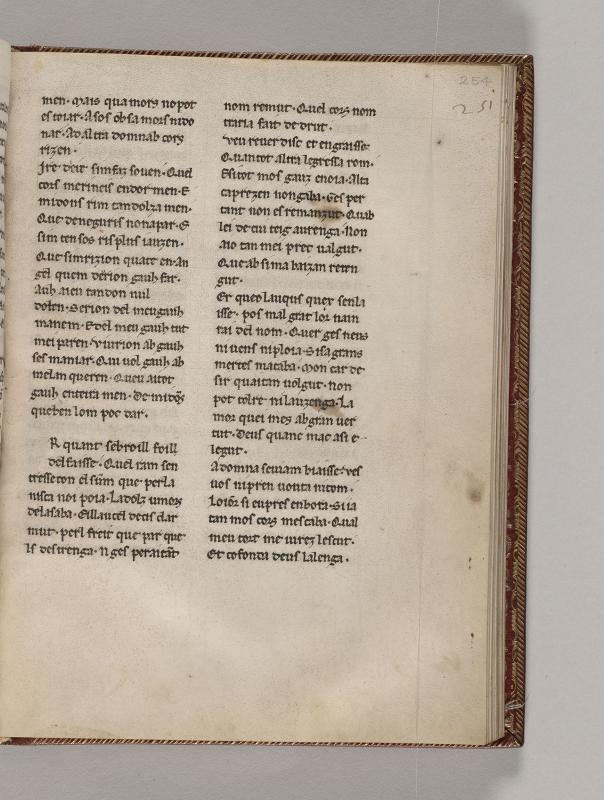 254
251
men. Mais qua mors no pot
estoiar. Asos ob sa mors mi do
nar. Ad altra domnab cors
rizen.
Ire deit sim faz soven. Quel
cors mermeis endormen. E
midons rim tan dolza men.
Que de neguris non apar. E
sim ten sos ris plus iauzen.
Que sim rizion quatr en. An
gel quem derion gauh far.
Auh aieu tan don nul
dolen. Serion del meu gauh
manem. E del meu gauh tut
mei paren. Viurion ab gauh
ses maniar. Qui uol gauh ab
me lan queren. Queu aitot
gauh enteira men. De midõs
que ben lom poc dar.
R quant sebroill foill
del faisse. Quel ram sen
tressecon el sim que perla
nisca noi poia. La dolz umors
de la saba. Eill aucel dectis clar
mut. perl freit que par que
ls destrenga. N ges peraitãt
nom remut. Quel cors nom
traria fait de drut.
Veu reuer disc et engraisse
Quan tot altra legressa rom.
Esitot mos gauz enoia. Alta
caprezen non gaba. Ges per
tant non es remanzut. Quab
lei de cui teig aurenga. Non
aio tan mei prec ualgut.
Que ab sima baizan reten
gut.
Er queo lauqus quer senla
isse. pos mal grat los uam
rai del nom. Quer ges neus
ni uens ni ploia. Si sa grans
merces mataba. Mon car de
sir quaitan uolgut. non
pot tolre ni lauzenga. La
mor quei mes ab gran uer
tut. Deus quanc mac asi e
legut.
A domna seuiam biaisse. ves
uos ni pren uonta ni tom.
Loiõr si eu pres en bota. Si ia
tan mos cors mescaba. Qual
meu tort me iurez lescut.
Et cofonda deus la lenga.